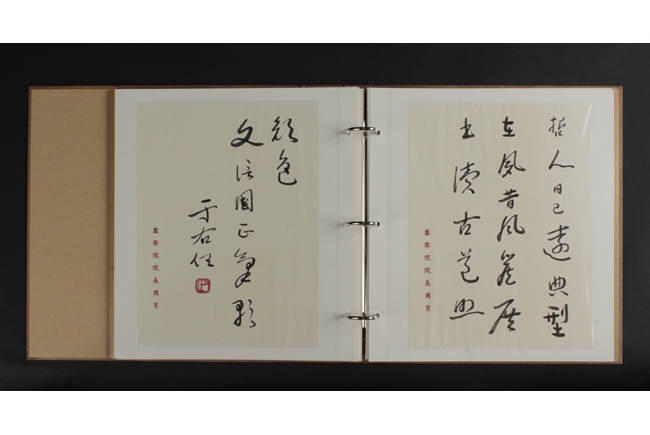 哲人日已遠典型
在夙昔風簷展
書讀古道照
監察院院長用箋
顏色
文信國正氣歌
于右任
監察院院長用箋